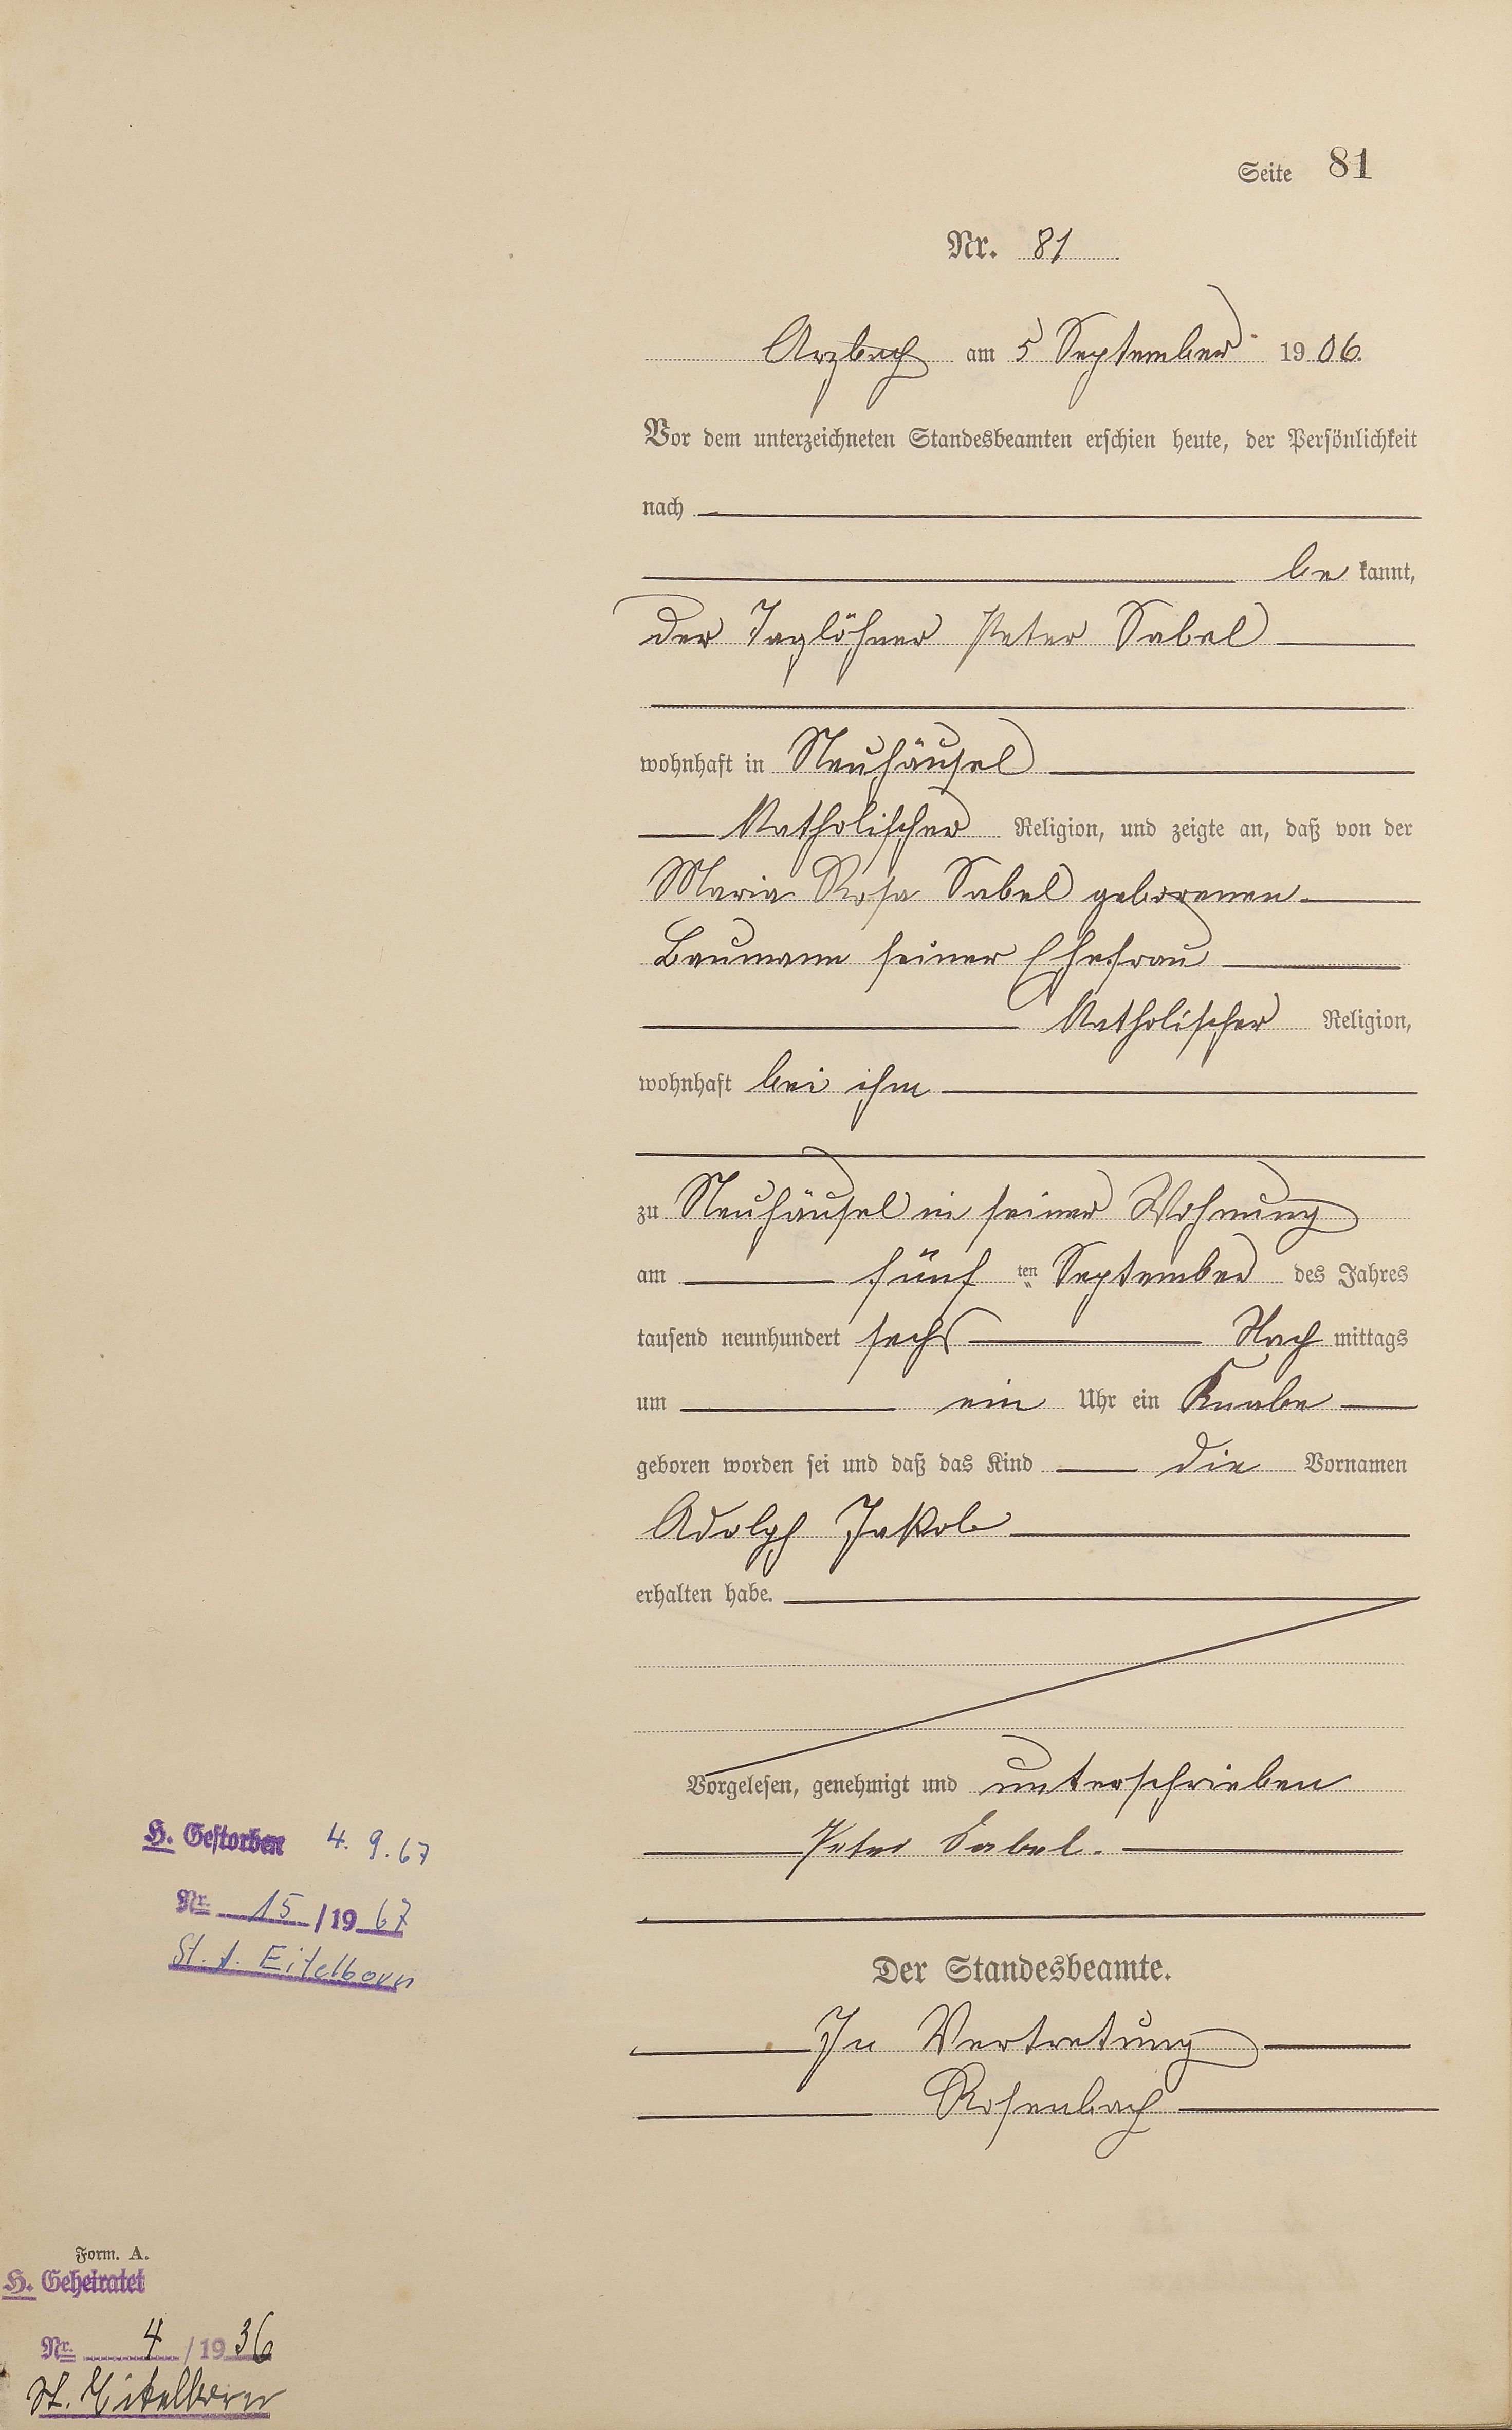 Seite 81
Nr. 81
Arzbach am 5 September 1906.
Vor dem unterzeichneten Standesbeamten erschien heute, der Persönlichkeit
nach
be kannt,
der Taglöhner Peter Sabel
wohnhaft in Neuhäusel
Katholischer Religion, und zeigte an, daß von der
Maria Rosa Sabel geborenen
Baumann seiner Ehefrau
Katholischer Religion,
wohnhaft bei ihm
zu Neuhäusel in seiner Wohnung
am fünf ten September des Jahres
tausend neunhundert sechs Nach mittags
um ein Uhr ein Knabe
geboren worden sei und daß das Kind die Vornamen
Adolph Jakob
erhalten habe.
Vorgelesen, genehmigt und unterschrieben
Peter Sabel.
Der Standesbeamte.
In Vertretung
Rosenbach
H. Gestorben 4. 9. 67
Nr. 15 /19 67
St. A. Eitelborn
Form. A.
H. Geheiratet
Nr. 4 /1936
St. Eitelborn